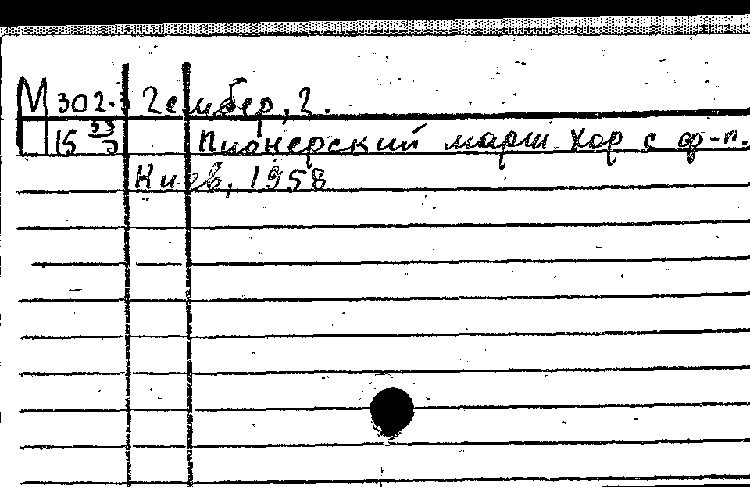 М 302. Гембер, Г.
15 33/3 Пионерский марш Хор с ф-п.
Киев, 1958